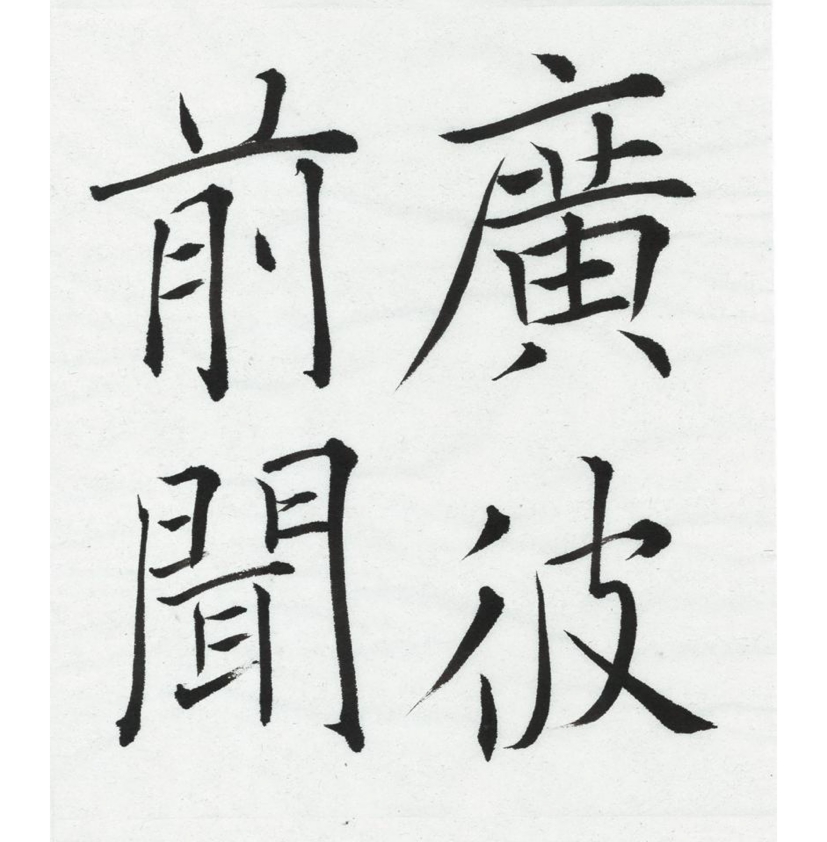 廣彼
前聞